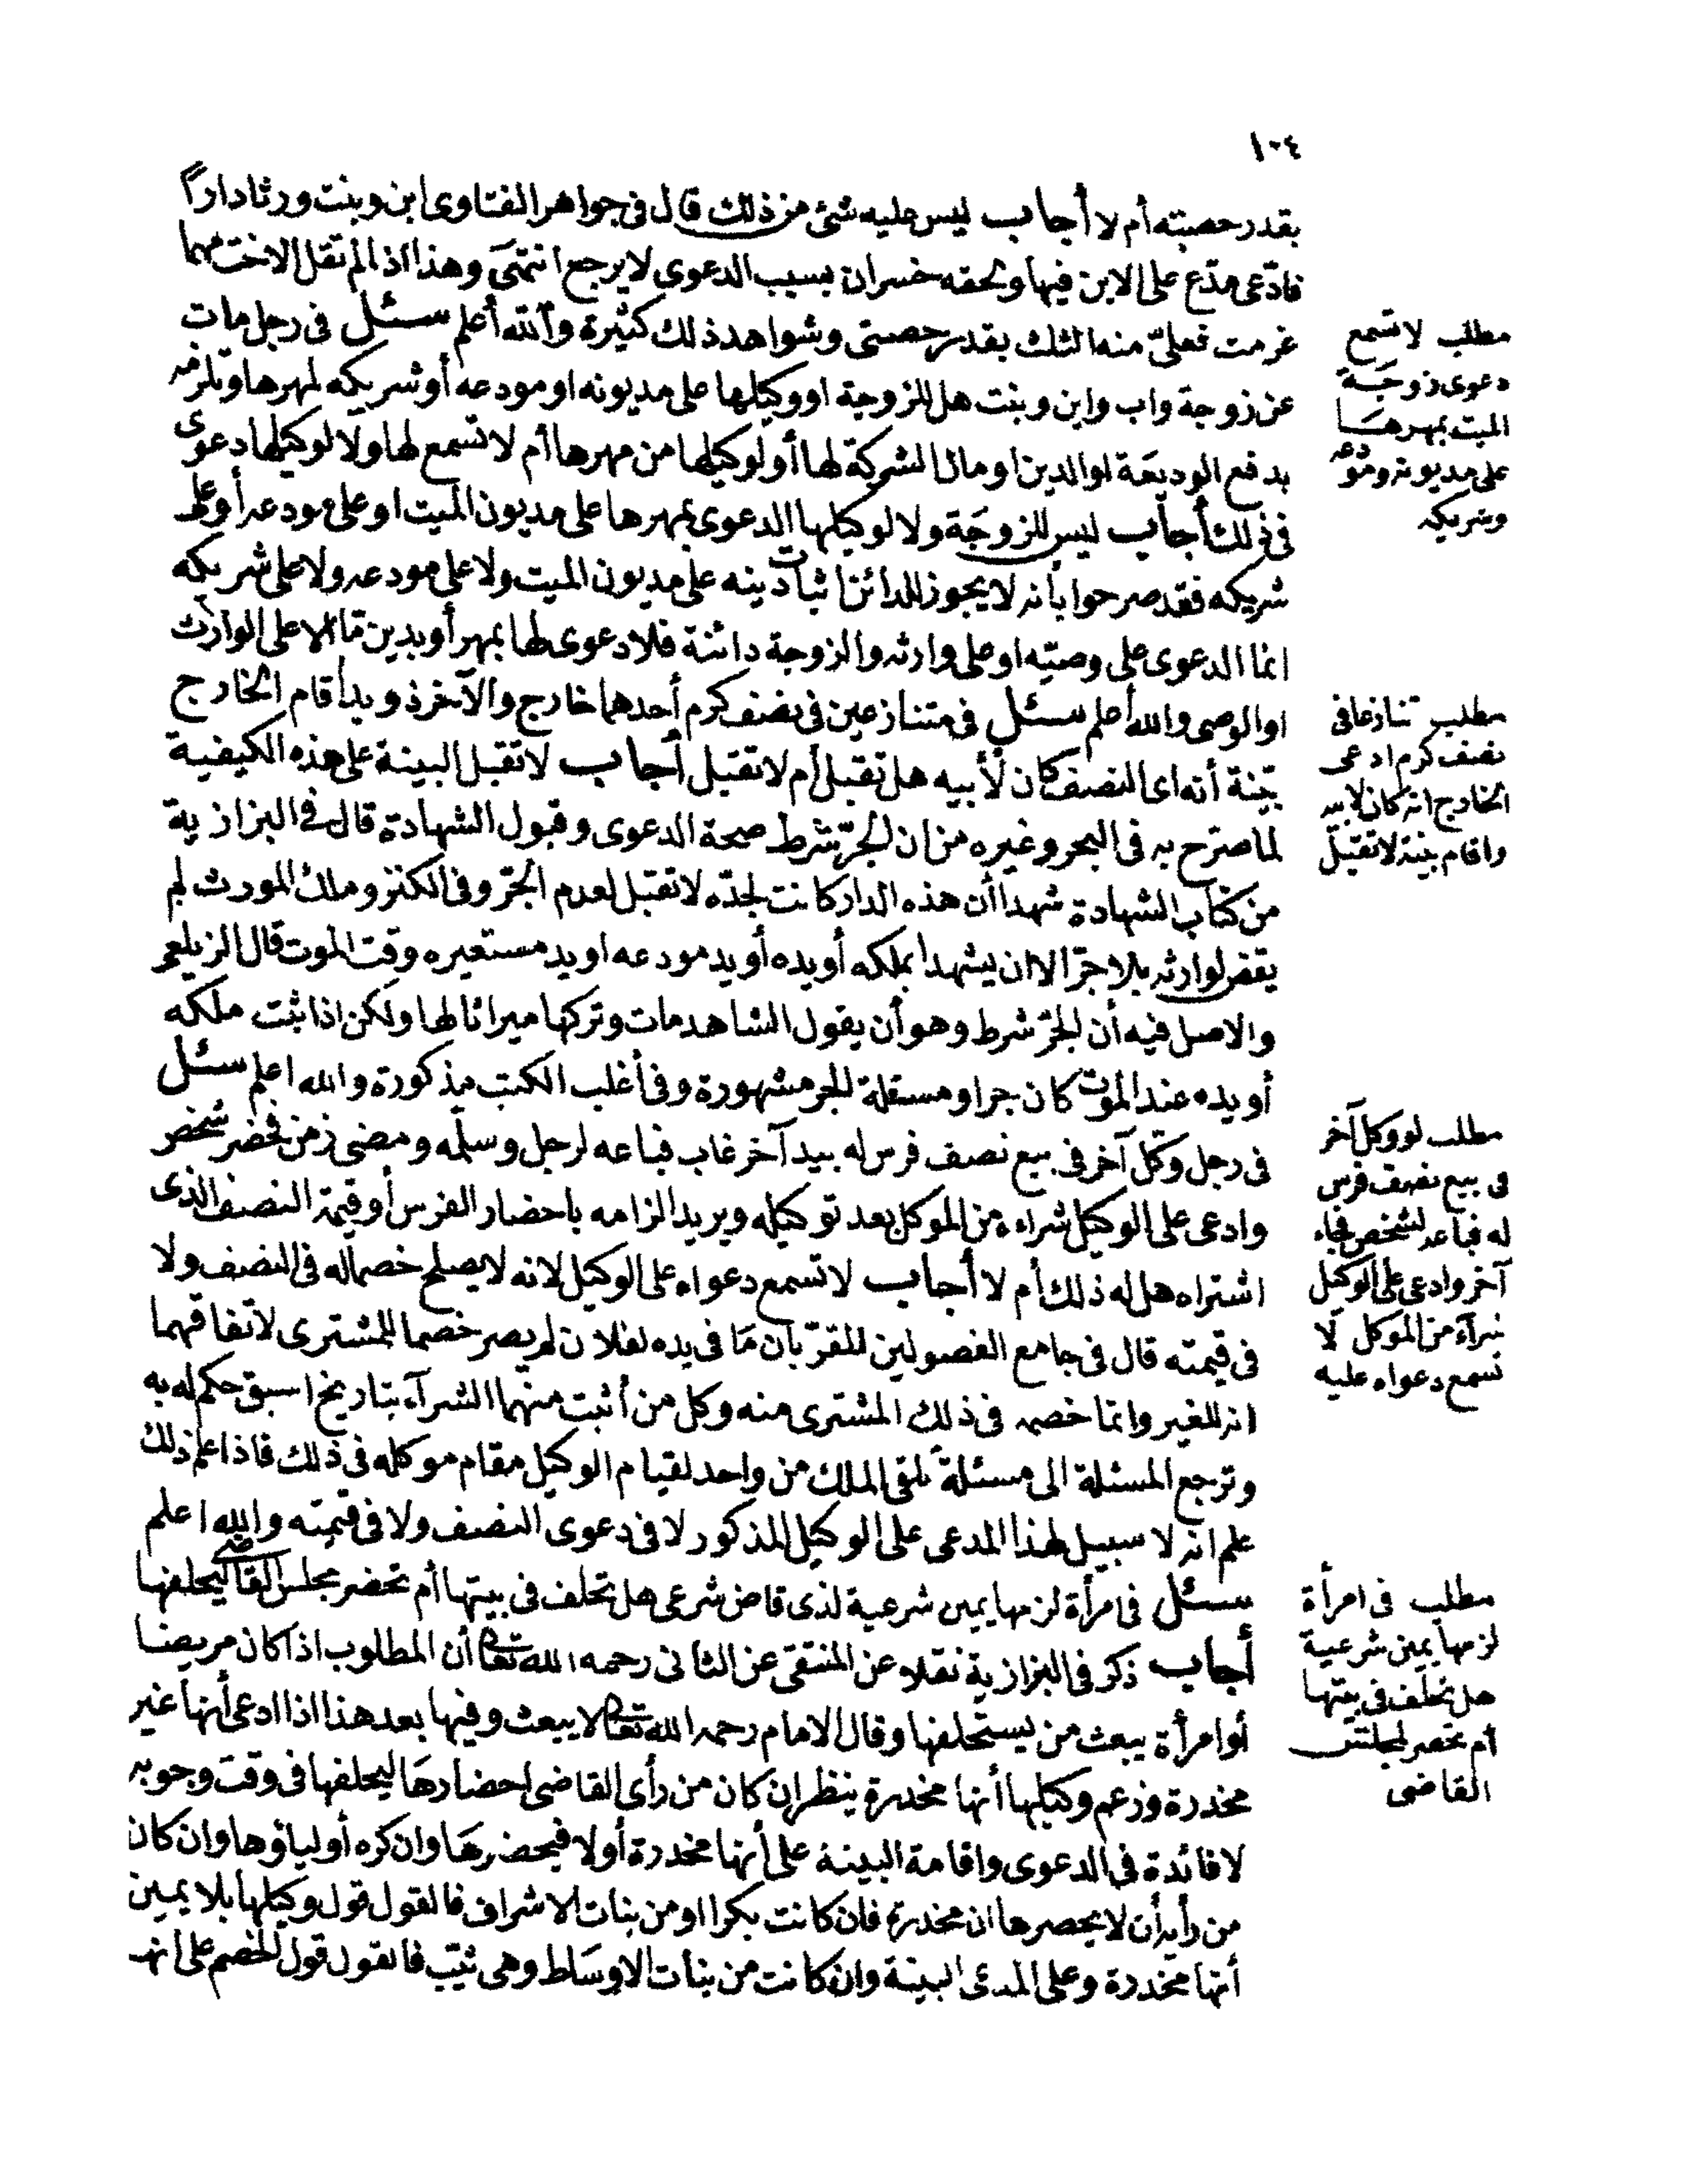 ١٠٤
بقدر حصته أم لا أجاب ليس عليه شئ من ذلك قال في جواهر الفتاوى ابن وبنت ورثا داراً
فادّعى مدّع على الابن فيها ولحقه خسران بسبب الدعوى لا يرجع انتهى وهذا اذا لم تقل الاخت مهما
غرمت فعليّ منه الثلث بقدر حصتى وشواهد ذلك كثيرة والله أعلم سئل فى رجل مات
عن زوجة واب وابن وبنت هل للزوجة او وكيلها على مديونه او مودعه أو شريكه لمهرها وتلزمه
بدفع الوديعة او الدين او مال الشركة لها أو لوكيلها من مهرها أم لا تسمع لها ولا لوكيلها دعوى
فى ذلك أجاب ليس للزوجة ولا لوكيلها الدعوى بمهرها على مديون الميت او على مودعه أو على
شريكه فقد صرحوا بأنه لا يجوز للدائن اثبات دينه على مديون الميت ولا على مودعه ولا على شريكه
انما الدعوى على وصيّه او على وارثه والزوجة دائنة فلا دعوى لها بمهر أو بدين ما الا على الوارث
او الوصى والله أعلم سئل فى متنازعين فى نصف كرم أحدهما خارج والآخر ذو يد أقام الخارج
بيّنة أنه اى النصف كان لأبيه هل تقبل أم لا تقبل أجاب لا تقبل البينة على هذه الكيفية
لما صرّح به فى البحر وغيره من ان الجرّ شرط صحة الدعوى وقبول الشهادة قال فى البزازية
من كتاب الشهادة شهدا أن هذه الدار كانت لجدّه لا تقبل لعدم الجرّ وفى الكنز وملك المورث لم
يقض لوارثه بلا جرّ الا ان يشهدا بملكه أو يده أو يد مودعه او يد مستعيره وقت الموت قال الزيلعى
والاصل فيه أن الجرّ شرط وهو أن يقول الشاهد مات وتركها ميراثا لها ولكن اذا ثبت ملكه
أو يده عند الموت كان جرا ومسئلة الجر مشهورة وفى أغلب الكتب مذكورة والله اعلم سئل
فى رجل وكّل آخر فى بيع نصف فرس له بيد آخر غاب فباعه لرجل وسلّمه ومضى زمن فحضر شخص
وادعى على الوكيل شراءه من الموكل بعد توكيله ويريد الزامه باحضار الفرس أو قيمة النصف الذى
اشتراه هل له ذلك أم لا أجاب لا تسمع دعواه على الوكيل لانه لا يصلح خصما له فى النصف ولا
فى قيمته قال فى جامع الفصولين المقرّ بان ما فى يده لفلان لم يصر خصما للمشترى لاتفاقهما
انه للغير وانما خصمه فى ذلك المشترى منه وكل من أثبت منهما الشرآء بتاريخ اسبق حكم له به
وترجع المسئلة الى مسئلة تلقى الملك من واحد لقيام الوكيل مقام موكله فى ذلك فاذا علم ذلك
علم انه لا سبيل لهذا المدعى على الوكيل المذكور لا فى دعوى النصف ولا فى قيمته والله اعلم
سئل فى امرأة لزمها يمين شرعية لذى قاض شرعى هل تحلف فى بيتها أم تحضر مجلس القاضى ليحلفها
أجاب ذكر فى البزازية نقلا عن المنتقى عن الثانى رحمه الله تعالى أن المطلوب اذا كان مريضا
أو امرأة يبعث من يستحلفها وقال الامام رحمه الله تعالى لا يبعث وفيها بعد هذا اذا ادعى أنها غير
مخدرة وزعم وكيلها أنها مخدرة ينظر ان كان من رأى القاضى احضارها ليحلفها فى وقت وجوبه
لا فائدة فى الدعوى واقامة البينة على أنها مخدرة أولا فيحضرها وان كره أولياؤها وان كان
من رأيه أن لا يحضرها ان مخدرة فان كانت بكرا او من بنات الاشراف فالقول قول وكيلها بلا يمين
أنها مخدرة وعلى المدعى البينة وان كانت من بنات الاوساط وهى ثيّب فالقول قول الخصم على انها
مطلب لا تسمع
دعوى زوجة
الميت بمهرها
على مديونه ومودعه
وشريكه
مطلب تنازعا فى
نصف كرم ادعى
الخارج انه كان لابيه
واقام بينة لا تقبل
مطلب لو وكل آخر
فى بيع نصف فرس
له فباعه لشخص فجاء
آخر وادعى على الوكيل
شرآءه من الموكل لا
تسمع دعواه عليه
مطلب فى امرأة
لزمها يمين شرعية
هل تحلف فى بيتها
أم تحضر لمجلس
القاضى